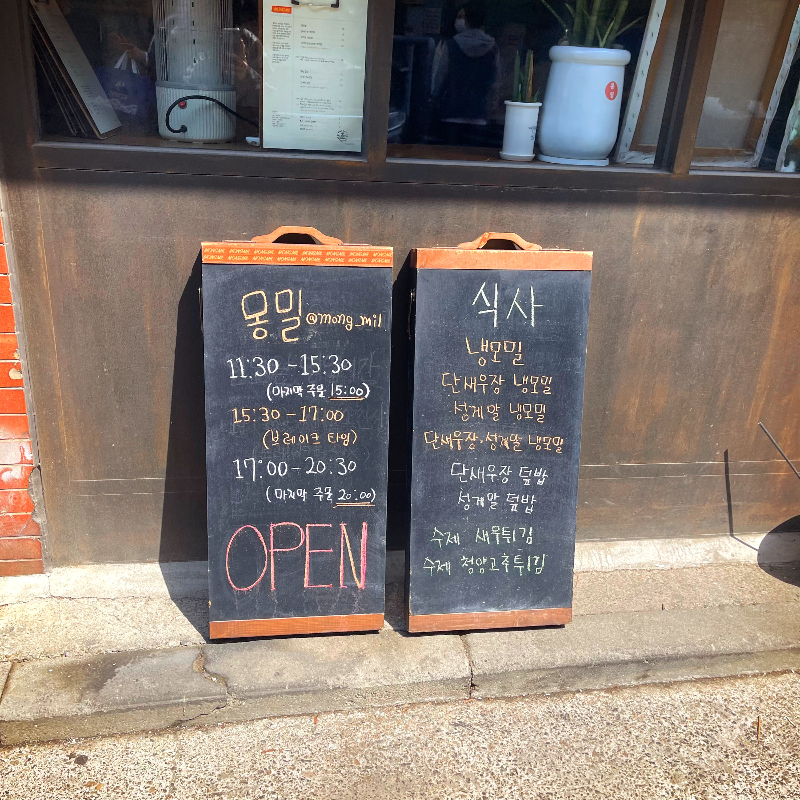 몽밀 @mong_mil
11:30 - 15:30
(마지막 주문 15:00)
15:30 - 17:00
(브레이크 타임)
17:00 - 20:30
(마지막 주문 20:00)
OPEN
식사
냉모밀
단새우장 냉모밀
성게알 냉모밀
단새우장·성게알 냉모밀
단새우장 덮밥
성게알 덮밥
수제 새우튀김
수제 청양고추튀김